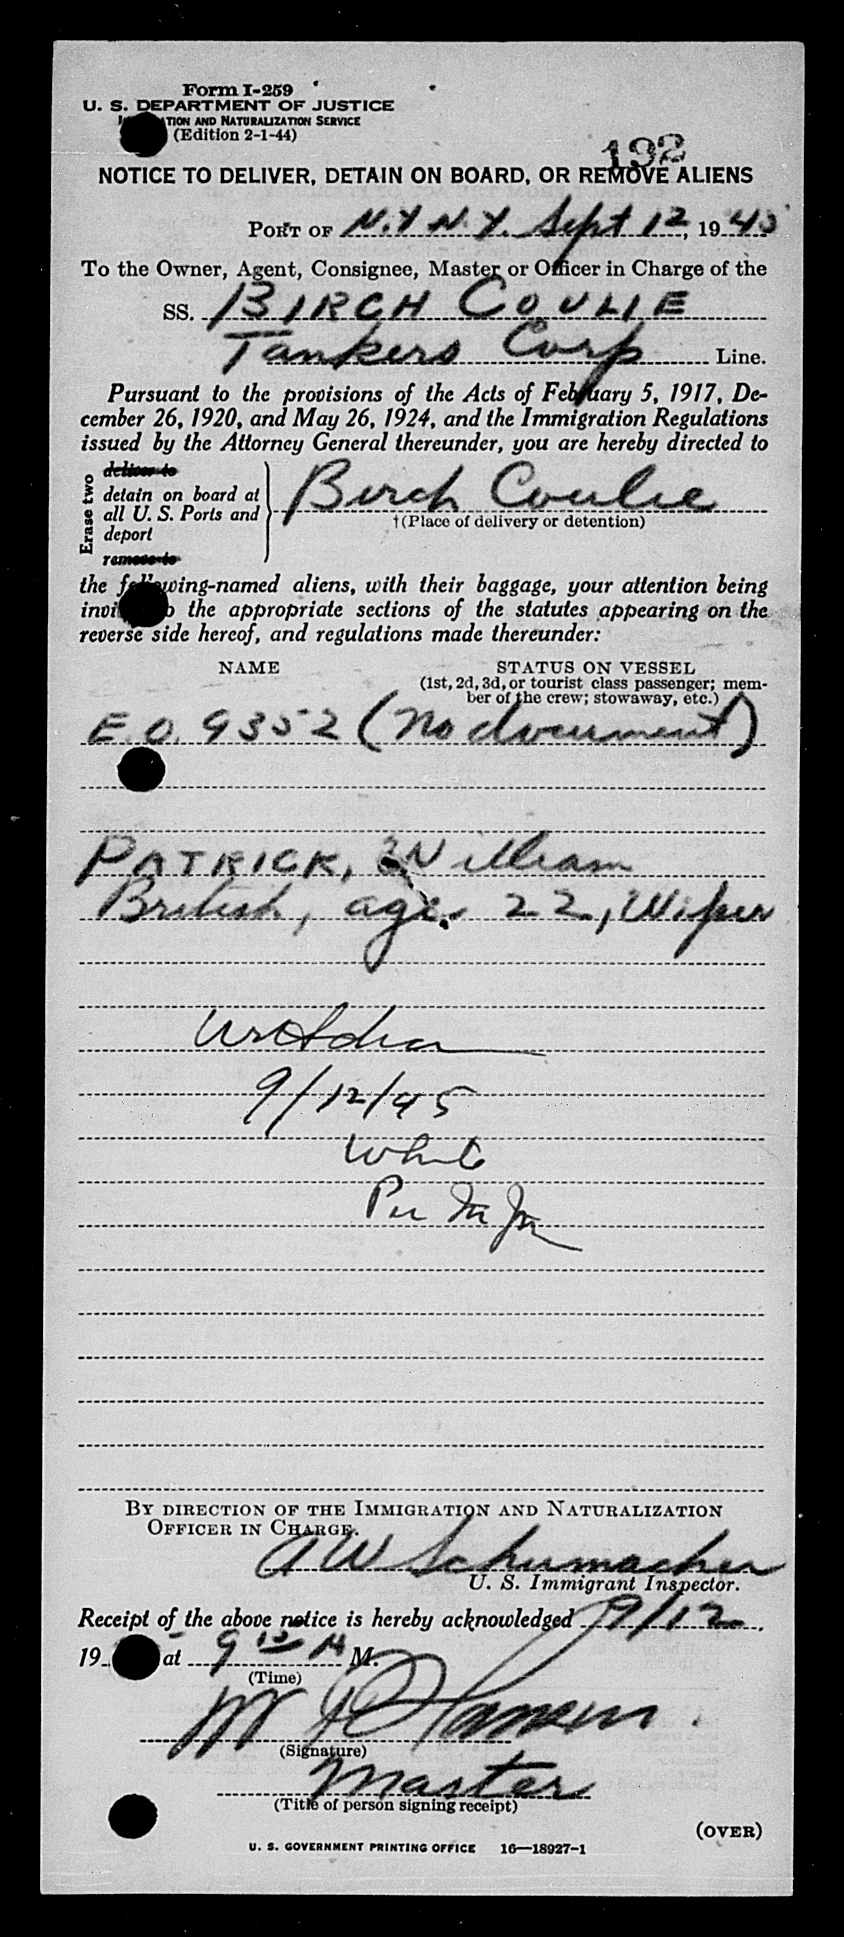 Form I-259
U. S. DEPARTMENT OF JUSTICE
TION AND NATURALIZATION SERVICE
(Edition 2-1-44)
192
NOTICE TO DELIVER, DETAIN ON BOARD, OR REMOVE ALIENS
PORT OF N.Y. N.Y. Sept 12, 1945
To the Owner, Agent, Consignee, Master or Officer in Charge of the
SS. BIRCH COULIE
Tankers Corp Line.
Pursuant to the provisions of the Acts of February 5, 1917, De-
cember 26, 1920, and May 26, 1924, and the Immigration Regulations
issued by the Attorney General thereunder, you are hereby directed to
Erase two
deliver to
detain on board at
all U. S. Ports and
deport
remove to
Birch Coulie
†(Place of delivery or detention)
the following-named aliens, with their baggage, your attention being
invi to the appropriate sections of the statutes appearing on the
reverse side hereof, and regulations made thereunder:
NAME STATUS ON VESSEL
(1st, 2d, 3d, or tourist class passenger; mem-
ber of the crew; stowaway, etc.)
E.O. 9352 (No document)
PATRICK, William
British, age 22, Wiper
9/12/45
White
Per
BY DIRECTION OF THE IMMIGRATION AND NATURALIZATION
OFFICER IN CHARGE.
A W Schumacher
U. S. Immigrant Inspector.
Receipt of the above notice is hereby acknowledged 9/12,
19 at 9 A M.
(Time)
Hansen
(Signature)
Master
(Title of person signing receipt)
(OVER)
U. S. GOVERNMENT PRINTING OFFICE 16—18927-1